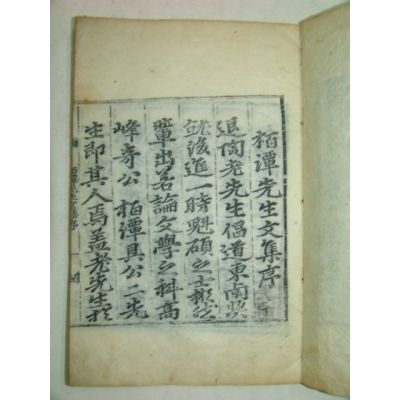 栢潭先生文集序
退陶老先生倡道東南興
後進一時魁碩之士彬然
輩出若論文學之科高
峰奇公栢潭具公二先
生即其人焉盖老先生於